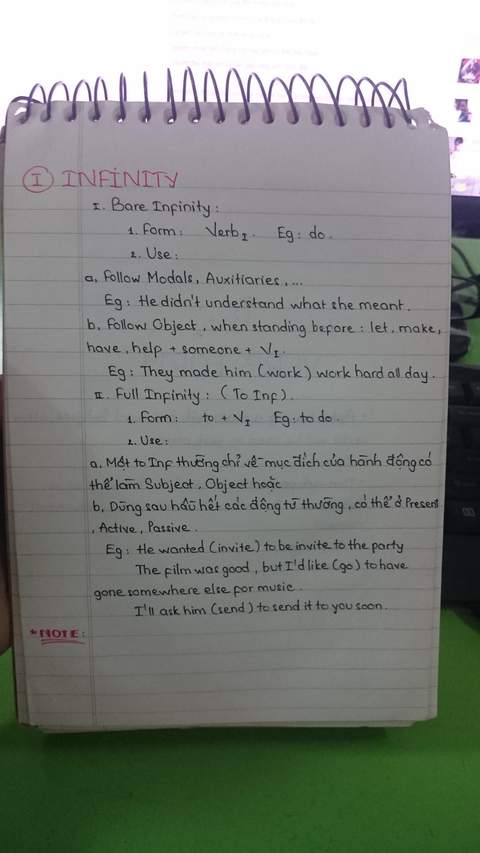 I INFINITY
I. Bare Infinity:
1. Form: Verb I. Eg: do.
2. Use:
a, Follow Modals, Auxitiaries,...
Eg: He didn't understand what she meant.
b. Follow Object, when standing before: let, make,
have, help + someone + V I.
Eg: They made him (work) work hard all day.
II. Full Infinity: (To Inf).
1. Form: to + V I Eg: to do.
2. Use:
a. Một to Inf thường chỉ về mục đích của hành động có
thể làm Subject, Object hoặc
b, Dùng sau hầu hết các động từ thường, có thể ở Present
, Active, Passive.
Eg: He wanted (invite) to be invite to the party
The film was good, but I'd like (go) to have
gone somewhere else for music.
I'll ask him (send) to send it to you soon.
*NOTE: